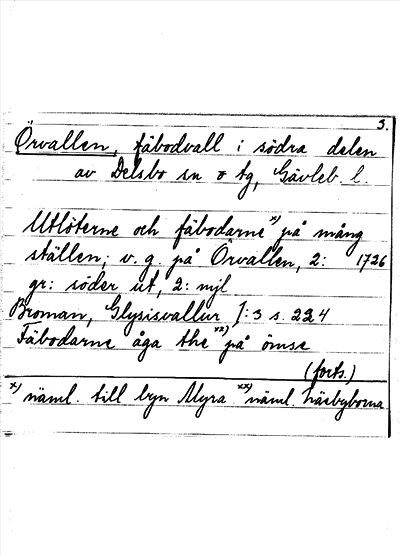 3.
Örvallen, fäbodvall i södra delen
av Delsbo sn o tg, Gävleb. l.
Utlöterne och fäbodarne x) på mång
ställen; v. g. på Örvallen, 2: 1726
gr: söder ut, 2: mjl
Broman, Glysisvallur I: 3 s. 224
Fäbodarne åga the xx) på ömse
(forts.)
x) näml. till byn Myra xx) näml. Näsbyborna